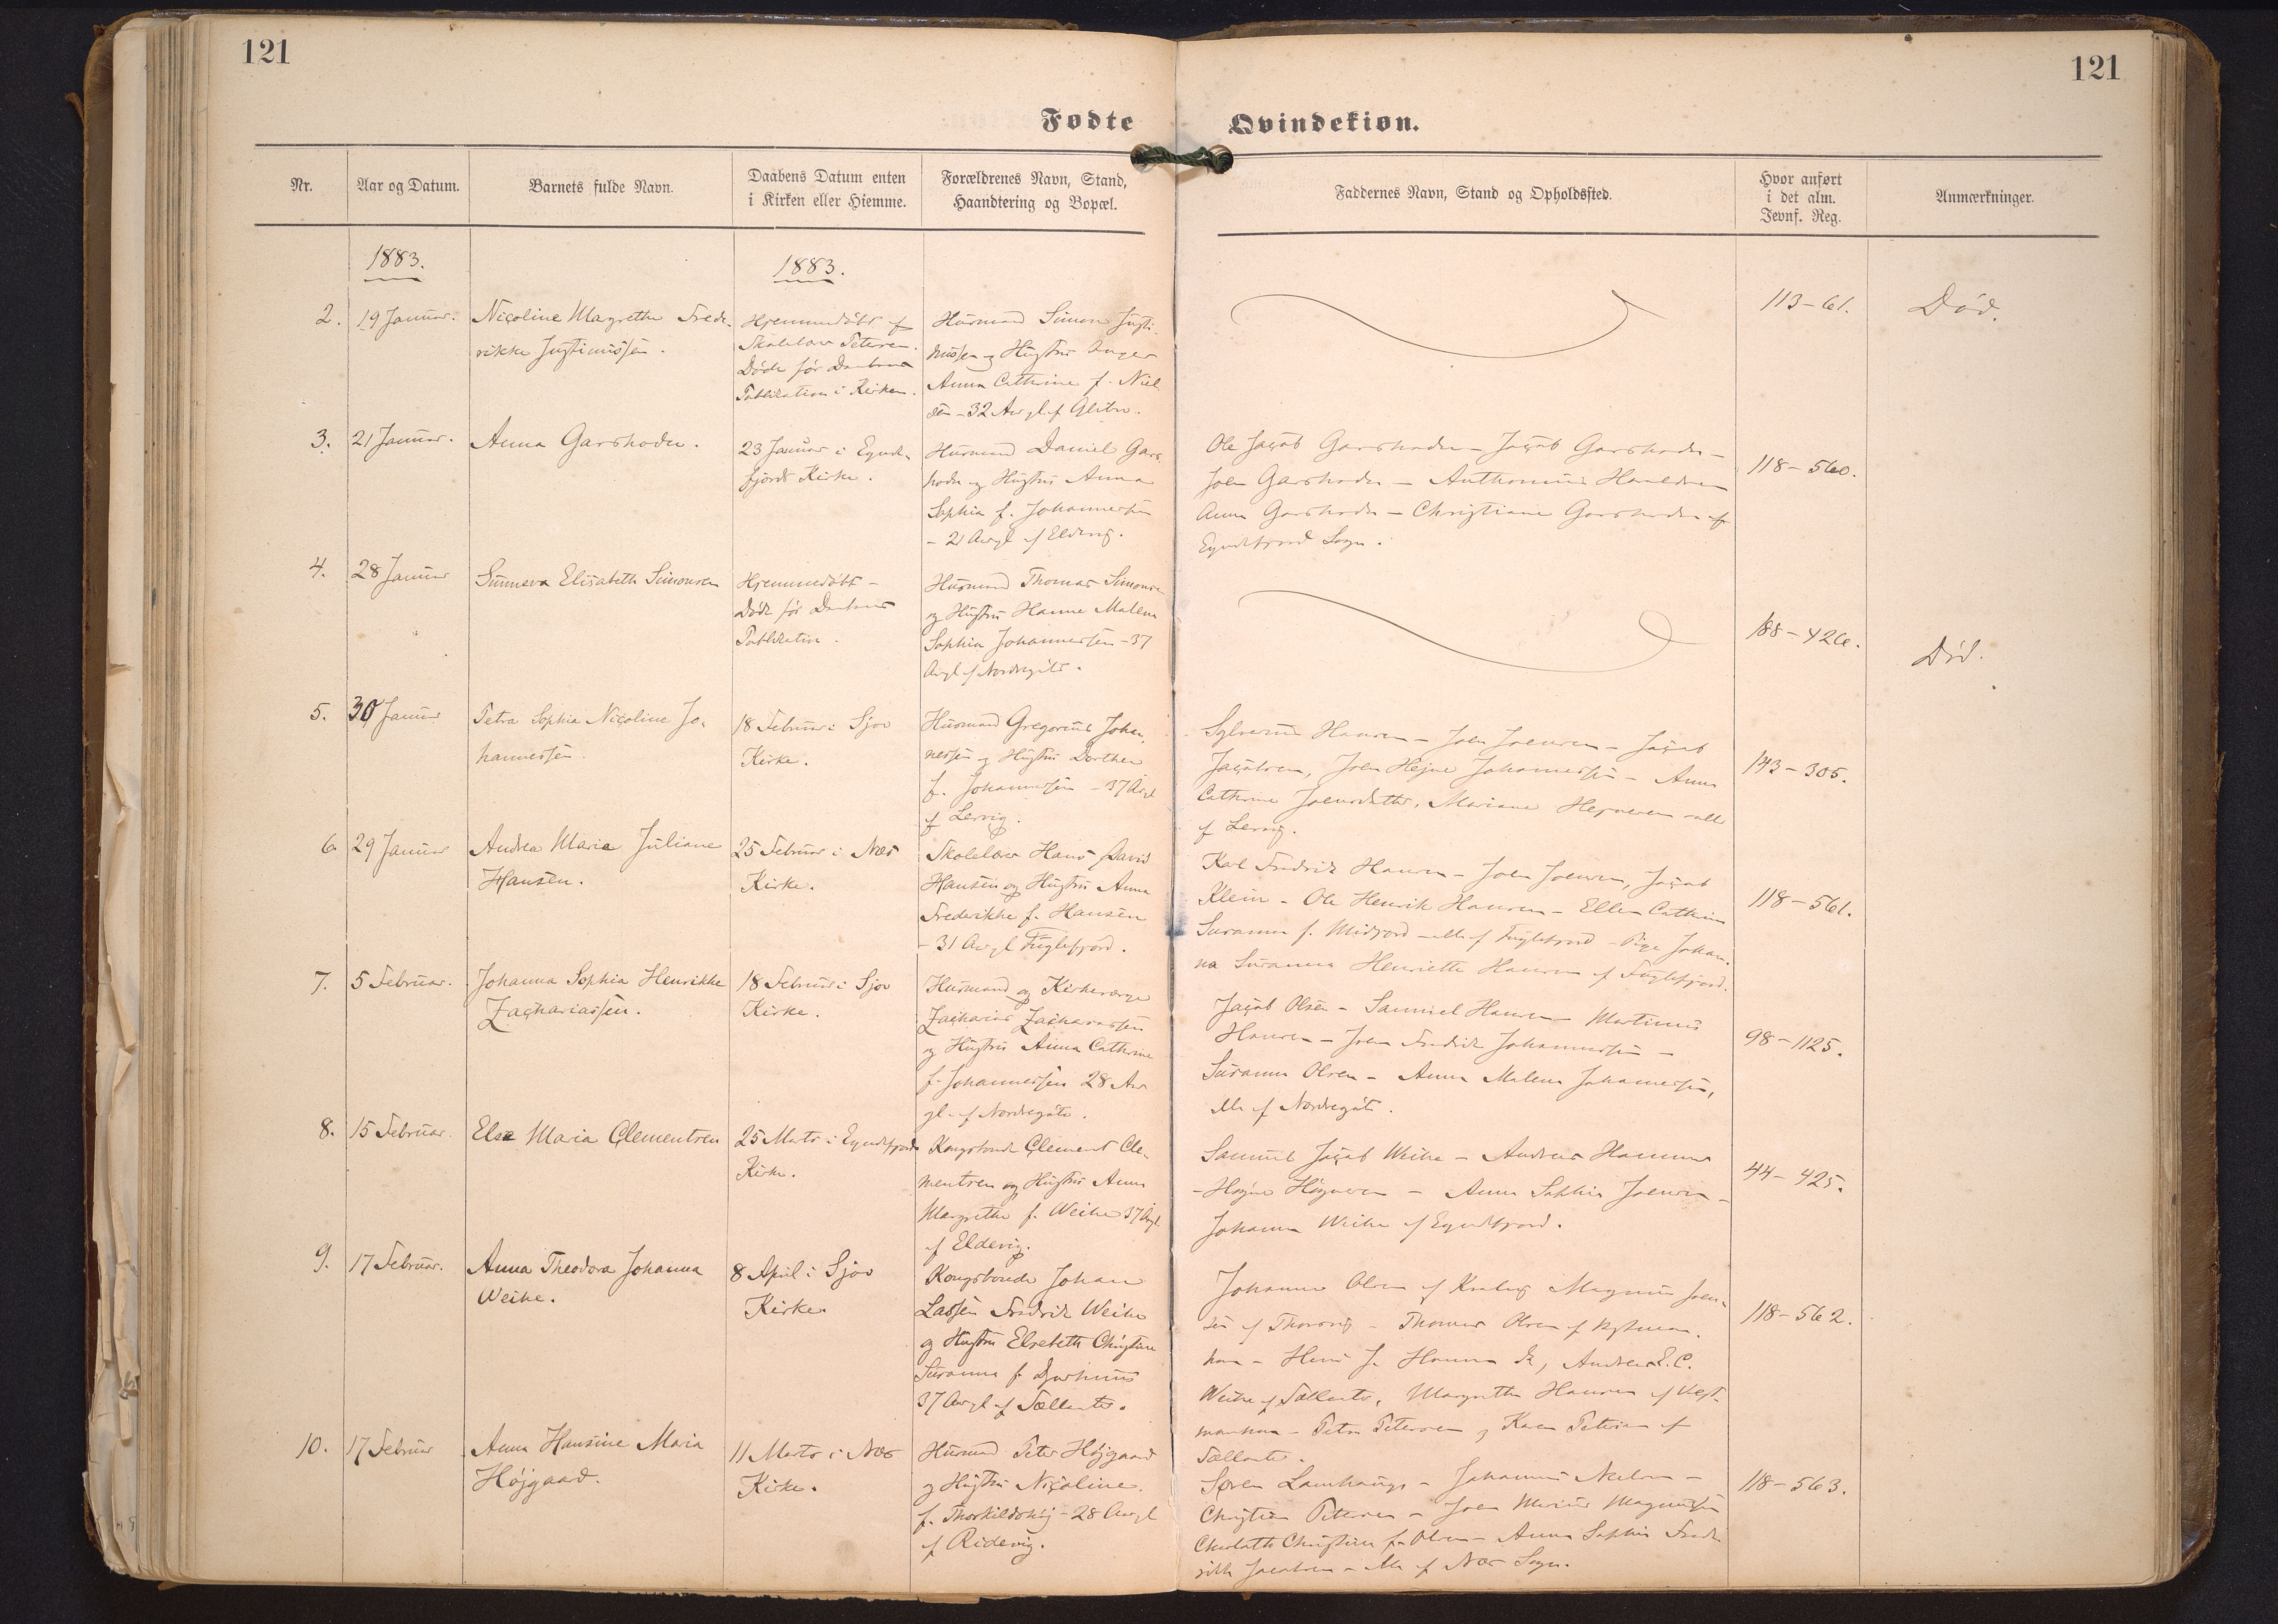 121
121
Fødte
Qvindekiøn.
Nr.
Aar og Datum.
Barnets fulde Navn.
Daabens Datum enten
i Kirken eller Hiemme.
Forældrenes Navn, Stand,
Haandtering og Bopæl.
Faddernes Navn, Stand og Opholdssted.
Hvor anført
i det alm.
Jevnf. Reg.
Anmærkninger.
1883.
1883.
2.
19 Januar.
Nicoline Magrethe Frede-
rikke Justinussen.
Hjemmedøbt af
Skolelærer Petersen.
Døde før Daabens
Publikation i Kirken.
Husmand Simon Justi-
nussen og Hustru
Anna Cathrine f. Niel
sen - 32 Aar gl. af Glibre.
113-61.
Død.
3.
21 Januar.
Anna Garshodn.
23 Januar i Eynde-
fjords Kirke.
Husmand Daniel Gars-
hodn og Hustru Anna
Sophia f. Johannessen
- 21 Aar gl. af Eldevig.
Ole Jacob Garshodn - Jacob Garshodn -
Joen Garshodn - Anthonius
Anna Garshodn - Christiane Garshodn af
Eyndefjord Sogn.
118-560.
4.
28 Januar
Sunneva Elisabeth Simonsen
Hjemmedøbt -
Døde før Daabens
Publikation.
Husmand Thomas Simonsen
og Hustru Hanne Malene
Sophia Johannessen - 37
Aar gl. af Nordregøte.
188-426.
Død.
5.
30 Januar
Petra Sophia Nicoline Jo-
hannessen.
18 Februar i Sjov
Kirke.
Husmand Gregorius Johan-
nessen og Hustru Dorthea
f. Johannessen - 37 Aar gl.
af Lervig.
Sylverius Hansen - Joen Joensen - Jacob
Jacobsen, Joen Hejne Johannessen - Anna
Cathrine Joensdatter, Mariane - alle
af Lervig.
143-305.
6
29 Januar
Andrea Maria Juliane
Hansen.
25 Februar i Næs
Kirke.
Skolelærer Hans David
Hansen og Hustru Anna
Frederikke f. Hansen
- 31 Aar gl. Fuglefjord.
Karl Fredrik Hansen - Joen Joensen, Jacob
Klein - Ole Henrik Hansen - Ellen Cathrine
Susanna f. Midjord - alle af Fuglefjord - Pige Johan-
na Susanna Henriette Hansen af Fuglefjord.
118-561.
7.
5 Februar.
Johanna Sophia Henrikke
Zachariassen.
18 Februar i Sjov
Kirke.
Husmand og Kirkeværge
Zacharias Zachariassen
og Hustru Anna Cathrine
f. Johannessen 28 Aar
gl. af Nordregøte.
Jacob Olsen - Samuel Hansen - Martinus
Hansen - Joen Fredrik Johannessen -
Susanna Olsen - Anna Malena Johannessen,
alle af Nordregøte.
98-1125.
8.
15 Februar.
Else Maria Clementsen
25 Marts i Eyndefjords
Kirke.
Kongsbonde Clement Cle-
mentsen og Hustru Anna
Margrethe f. Weihe 37 Aar gl.
af Eldevig.
Samuel Jacob Weihe - Andreas
- Høgne Høgnesen - Anna Sophia Joensen -
Johanna Weihe af Eyndefjord.
44-425.
9.
17 Februar.
Anna Theodora Johanna
Weihe.
8 April i Sjov
Kirke.
Kongsbonde Johan
Lassen Fredrik Weihe
og Hustru Elsebeth Christine
Susanna f. Djurhuus
37 Aar gl. af Sællatræ.
Johannes Olsen af Magnus Joen-
sen af Thorsvig - Thomas Olsen af Vestman-
hav - Hansen
Weihe af Sællatræ, Margrethe Hansen af Vest-
manhavn - Petra Petersen og Karen Petersen af
Sællatræ.
118-562.
10.
17 Februar
Anna Hansine Maria
Højgaard.
11 Marts i Næs
Kirke.
Husmand Peter Højgaard
og Hustru Nicoline
f. Thorkildshøj - 28 Aar gl.
af Ridevig.
Søren Lamhauge - Johannes Nielsen -
Christian Petersen - Joen Marius Magnussen
Charlotte Christine f. Olsen - Anna Sophia Frede
rikke Jacobsen - alle af Næs Sogn.
118-563.